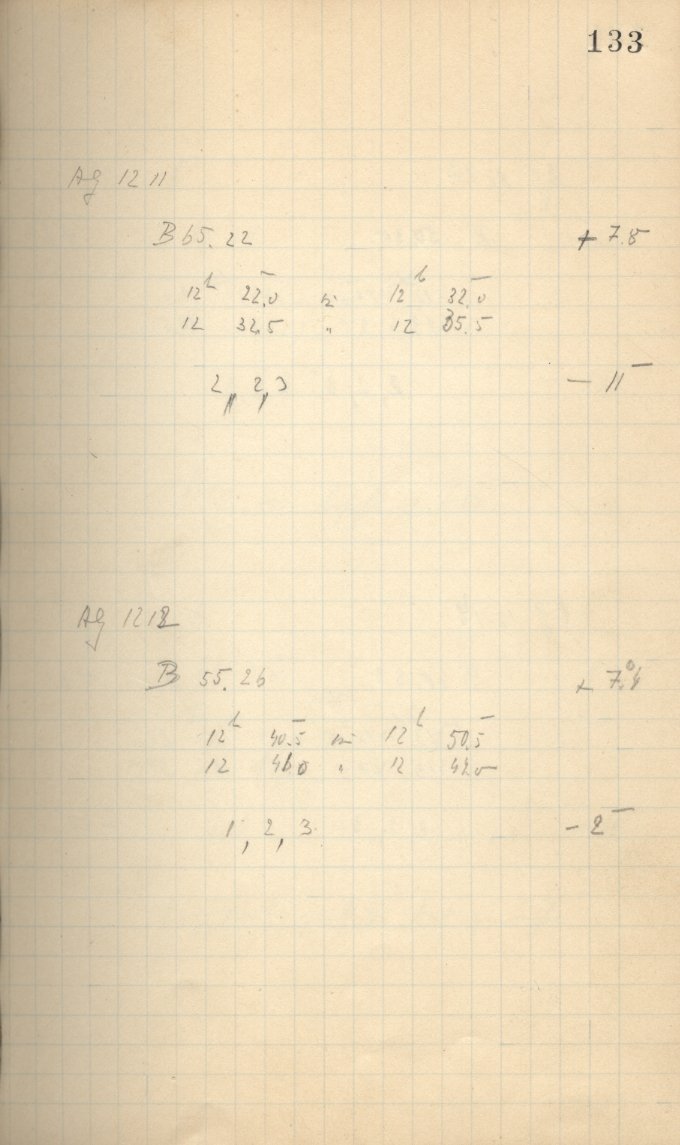 133
Ag 1211
B 65.22 + 7.8
12h 22.0 bis 12h 32.0
12 32.5 " 12 35.5
2,, 2, 3 — 11
Ag 1212
B 55.26 + 7.
12h 40.5 bis 12h 50.5
12 " 12
1, 2, 3 — 2